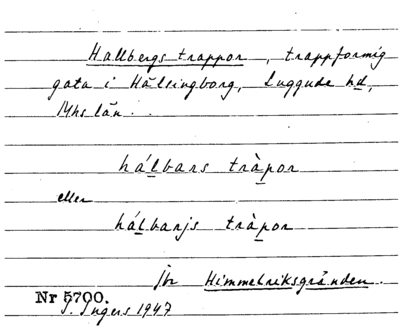 Hallbergs trappor, trappformig
gata i Hälsingborg, Luggude hd,
Mhs län.
hálbars tràpor
eller
hálbarjs tràpor
Jbr Himmelriksgränden.
Nr 5700.
I. Ingers 1947